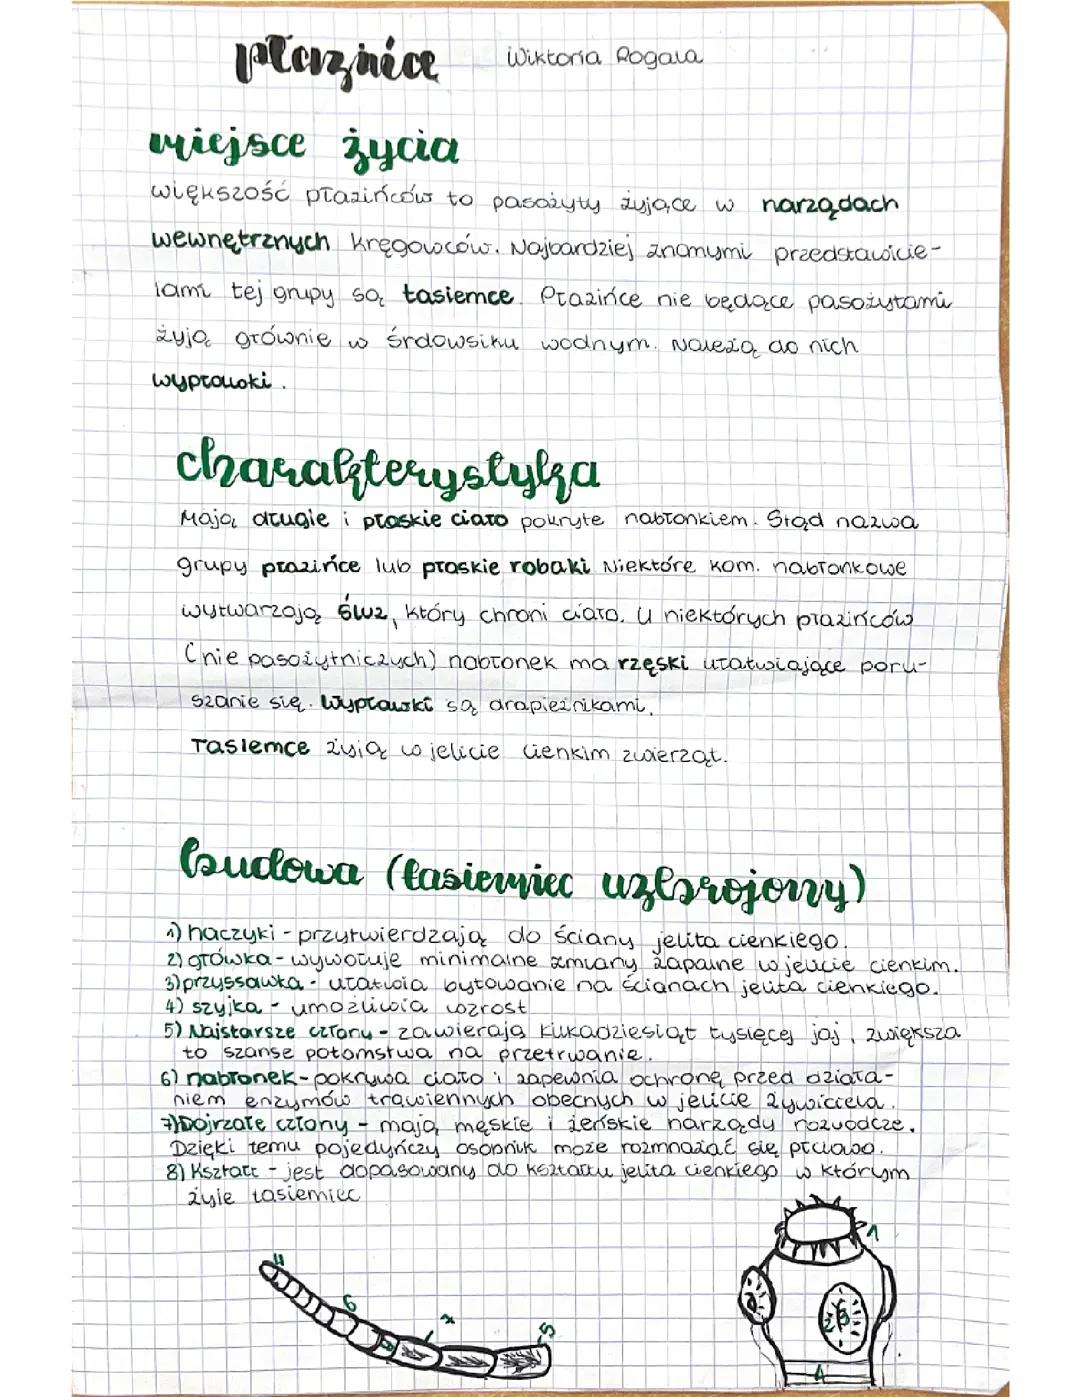 płazińce Wiktoria Rogala
miejsce życia
większość płazińców to pasożyty żyjące w narządach
wewnętrznych kręgowców. Najbardziej znanymi przedstawicie-
lami tej grupy są tasiemce. Płazińce nie będące pasożytami
żyją głównie w śrdowsiku wodnym. Należą do nich
wypławki.
charakterystyka
Mają długie i płaskie ciało pokryte nabłonkiem. Stąd nazwa
grupy płazińce lub płaskie robaki Niektóre kom. nabłonkowe
wytwarzają śluz, który chroni ciało. U niektórych płazińców
(nie pasożytniczych) nabłonek ma rzęski ułatwiające poru-
szanie się. Wypławki są drapieżnikami.
Tasiemce żyją w jelicie cienkim zwierząt.
budowa (tasiemiec uzbrojony)
1) haczyki - przytwierdzają do ściany jelita cienkiego.
2) główka - wywołuje minimalne zmiany zapalne w jelicie cienkim.
3) przyssawka - ułatwia bytowanie na ścianach jelita cienkiego.
4) szyjka - umożliwia wzrost
5) Najstarsze człony - zawierają kilkadziesiąt tysięcy jaj, zwiększa
to szanse potomstwa na przetrwanie.
6) nabłonek - pokrywa ciało i zapewnia ochronę przed działa-
niem enzymów trawiennych obecnych w jelicie żywiciela.
7) Dojrzałe człony - mają męskie i żeńskie narządy rozwodcze.
Dzięki temu pojedyńczy osobnik może rozmnażać się płciowo.
8) Kształt - jest dopasowany do kształtu jelita cienkiego w którym
żyje tasiemiec
1
6
7
5
8
4